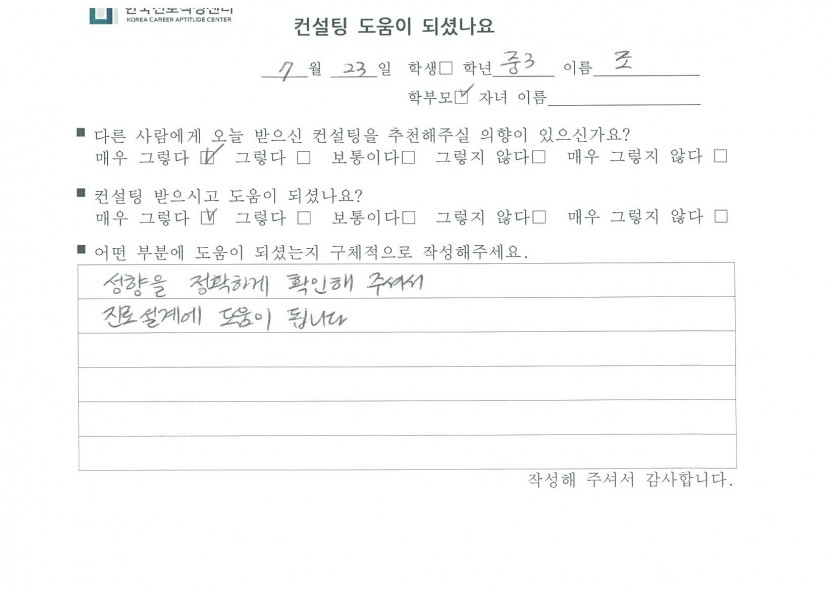 한국진로적성센터
KOREA CAREER APTITUDE CENTER
컨설팅 도움이 되셨나요
7월 23일 학생□ 학년 중3 이름 조
학부모☑ 자녀 이름
■ 다른 사람에게 오늘 받으신 컨설팅을 추천해주실 의향이 있으신가요?
매우 그렇다 ☑ 그렇다 □ 보통이다□ 그렇지 않다□ 매우 그렇지 않다 □
■ 컨설팅 받으시고 도움이 되셨나요?
매우 그렇다 ☑ 그렇다 □ 보통이다□ 그렇지 않다□ 매우 그렇지 않다 □
■ 어떤 부분에 도움이 되셨는지 구체적으로 작성해주세요.
성향을 정확하게 확인해 주셔서
진로설계에 도움이 됩니다
작성해 주셔서 감사합니다.